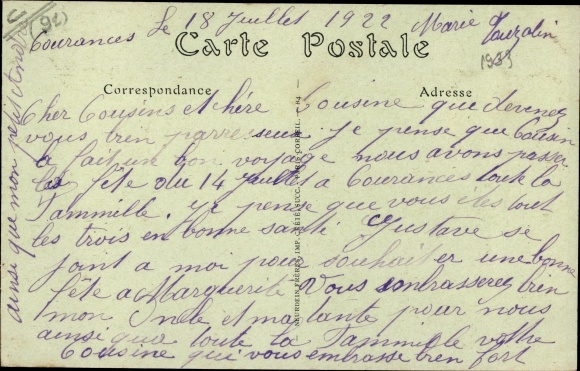 (91)
Courances Le 18 Juillet 1922 Marie
1933
Carte Postale
Correspondance Adresse
Cher Cousins et chére Cousine que devenez
vous bien parreseux. je pense que Cousin
a fait un bon voyage nous avons passer
la fête du 14 Juillet a Courances toute la
Fammille. Je pense que vous êtes tout
les trois en bonne santé Gustave se
joint a moi pour souhaiter une bonne
fête a Marguerite Vous embrasserez bien
mon Oncle et ma tante pour nous
ainsi qua toute la Fammille votre
Cousine qui vous embrasse bien fort
ainsi que mon petit André